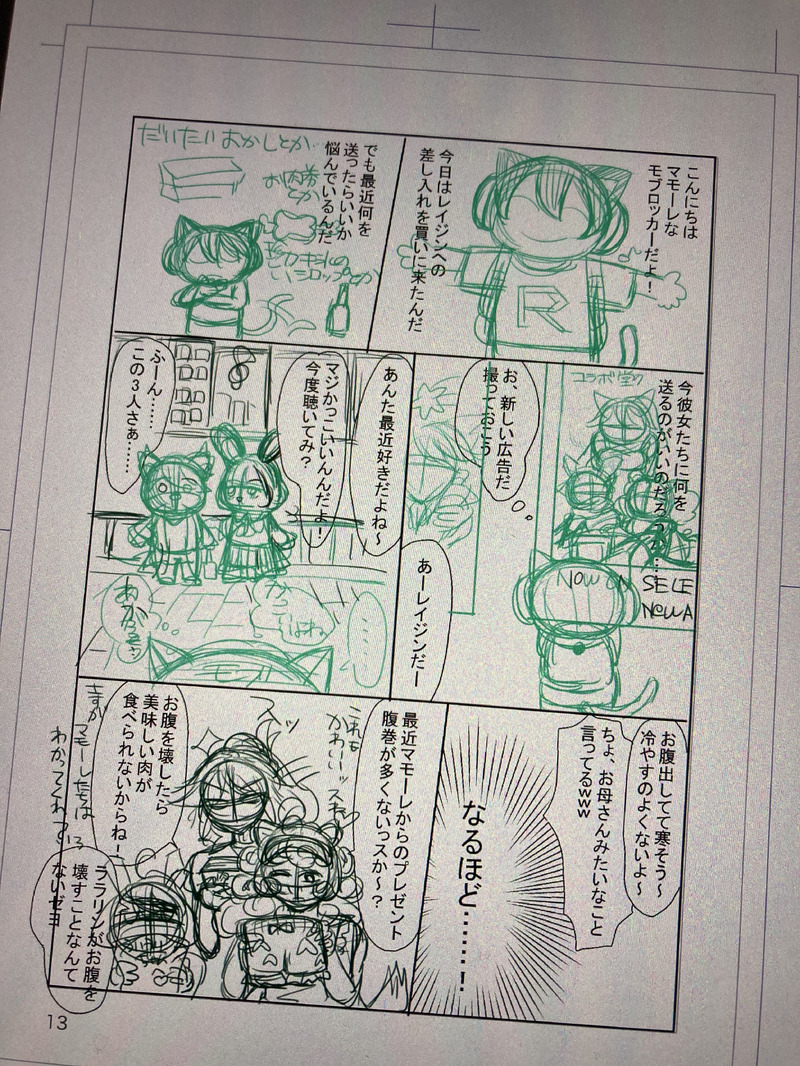 こんにちは
マモーレな
モブロッカーだよ！
今日はレイジンへの
差し入れを買いに来たんだ
R
でも最近何を
送ったらいいか
悩んでいるんだ
だいたいおかしとか
お肉券
とか
コラボ
今彼女たちに何を
送るのがいいのだろうか…
お、新しい広告だ
撮っておこう
NOW ON
SELE
NOWA
あーレイジンだー
あんた最近好きだよね～
マジかっこいいんだよ！
今度聴いてみ？
ふーん……
この3人さぁ……
……
お腹出してて寒そう～
冷やすのよくないよ～
ちょ、お母さんみたいなこと
言ってるwww
なるほど……！
最近マモーレからのプレゼント
腹巻が多くないっスか～？
これも
かわいーッスね
お腹を壊したら
美味しい肉が
食べられないからね！
さすが
マモーレたちは
わかってくれ
ララリンがお腹を
壊すことなんて
ないゼヨ
13